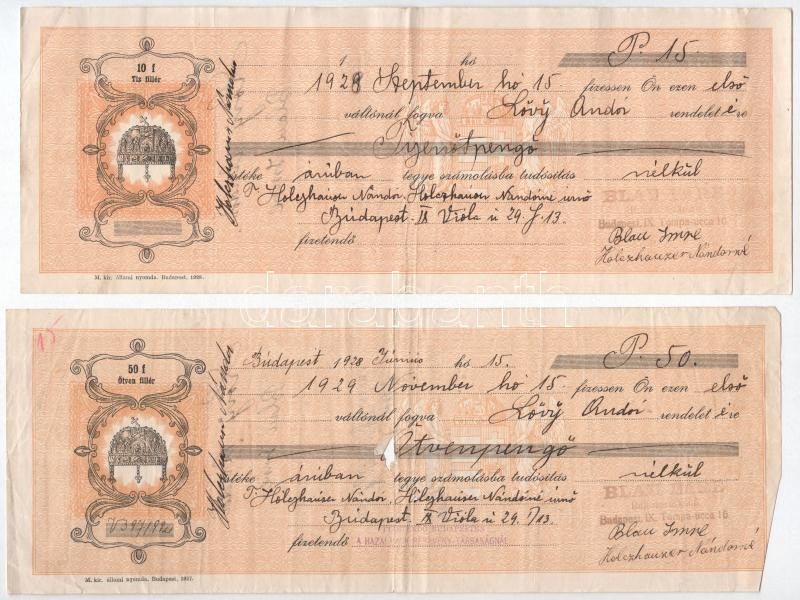 10 f
Tiz fillér
1 hó P. 15.
1928 September hó 15. fizessen Ön ezen első
váltónál fogva Lővy Andor rendeletére
Tizenötpengő
téke áruban tegye számolásba tudósitás nélkül
T Holczhauser Nándor, Holczhauser Nándorné urnő
Budapest IX Viola u 29. f. 13.
fizetendő
BLAU
Budapest, IX. Tompa-utca 16
Blau Imre
Holczhauzer Nándorné
Holczhauser Nándor
M. kir. állami nyomda. Budapest, 1928.
darabanth
15
50 f
Ötven fillér
Budapest 1928 Június hó 15. P. 50.
1929 November hó 15 fizessen Ön ezen első
váltónál fogva Lővy Andor rendeletére
Ötvenpengő
téke áruban tegye számolásba tudósitás nélkül
T Holczhauser Nándor, Holczhauser Nándorné urnő
Budapest. IX Viola u 29. I/13.
fizetendő A HAZAI
BLAU
Budapest, IX. Tompa-utca 16
Blau Imre
Holczhauzer Nándorné
Holczhauser Nándor
M. kir. állami nyomda. Budapest, 1927.